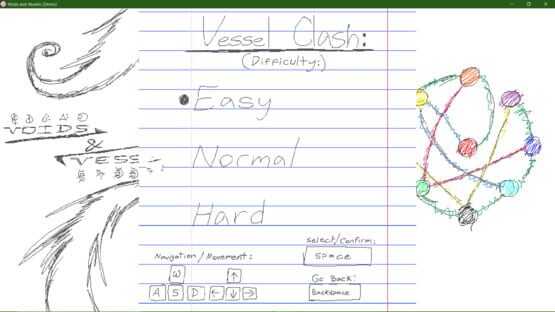 Voids and Vessels (Demo)
Vessel Clash:
(Difficulty:)
Easy
VOIDS
&
VESS
Normal
Hard
Select/Confirm:
Space
Navigation/Movement:
W ↑
Go Back:
A S D ← ↓ →
Backspace